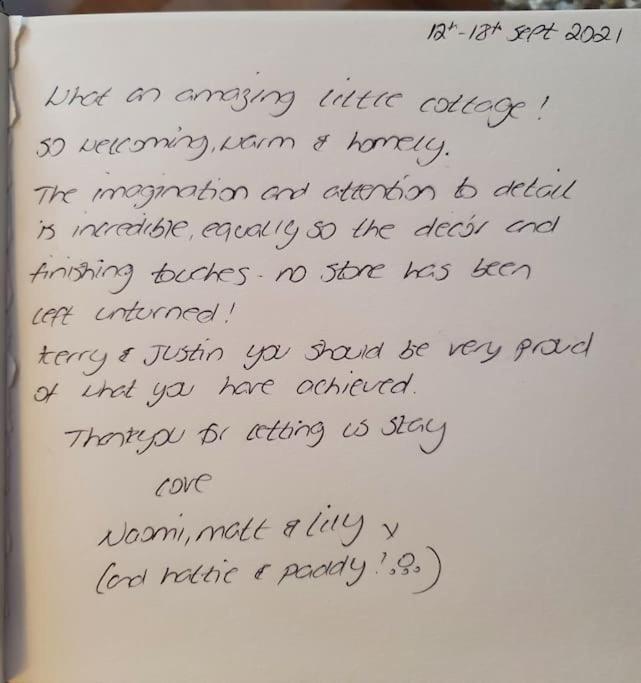 12th - 18th Sept 2021
What an amazing little cottage!
So welcoming, warm & homely.
The imagination and attention to detail
is incredible, equally so the decór and
finishing touches - no stone has been
left unturned!
Kerry & Justin you should be very proud
of what you have achieved.
Thankyou for letting us stay
love
Naomi, Matt & Lilly x
(and Hattie & Paddy!)